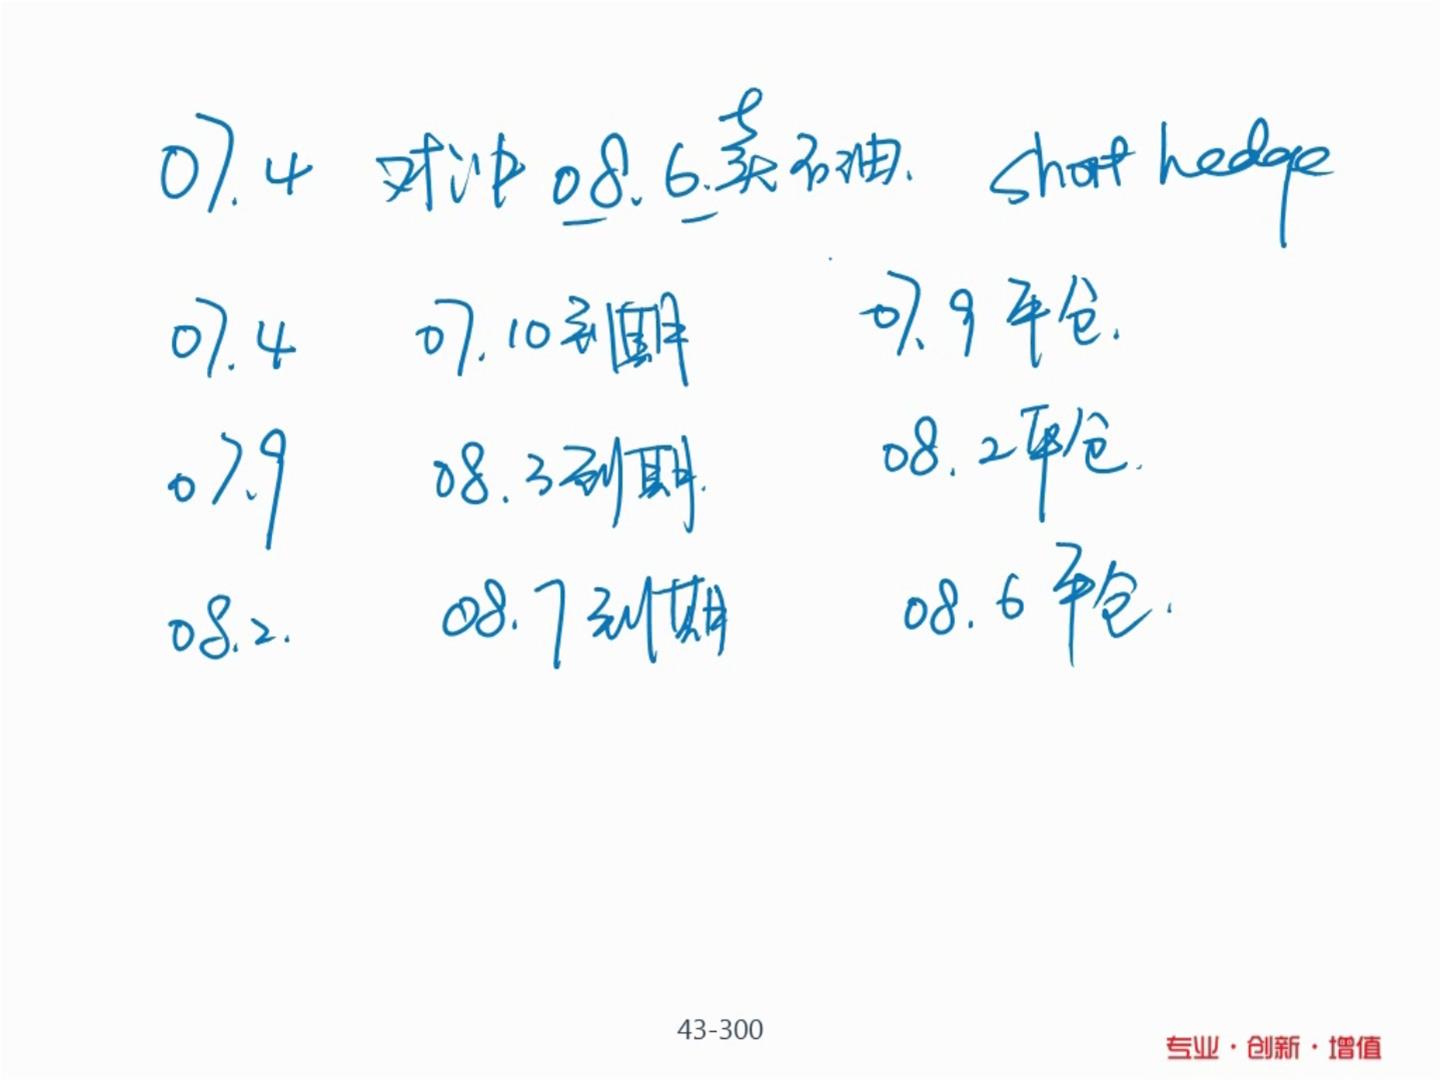 07.4 对冲 08.6.卖石油. short hedge
07.4 07.10到期 07.9平仓.
07.9 08.3到期. 08.2平仓.
08.2. 08.7到期 08.6平仓.
43-300
专业·创新·增值